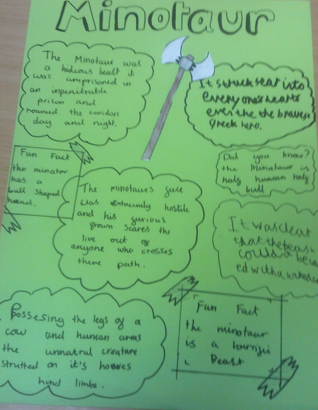 Minotaur
The Minotaur was
a hideous beast it
was imprisoned in
an inpenitrable
prison and
roamed the coridors
day and night.
It struck fear into
everyones hearts
even the the bravest
greek hero.
Fun Fact
the minotaur
has a
bull shaped
head.
Did you know?
the Minotaur is
half human half
bull
The minotaurs face
was extremely hostile
and his
scares the
live out of
anyone who crosses
there path.
It was clear
that the beast
could
ed with a
Possesing the legs of a
cow and human arms
the unnatral creature
strutted on it's hooves
hind limbs.
Fun Fact
the minotaur
is a
Beast